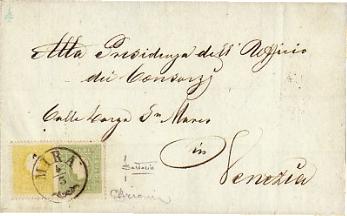 Alla Presidenza dell' Ufficio
dei Consorzj
Calle larga Sn Marco
in
Venezia
MIRA